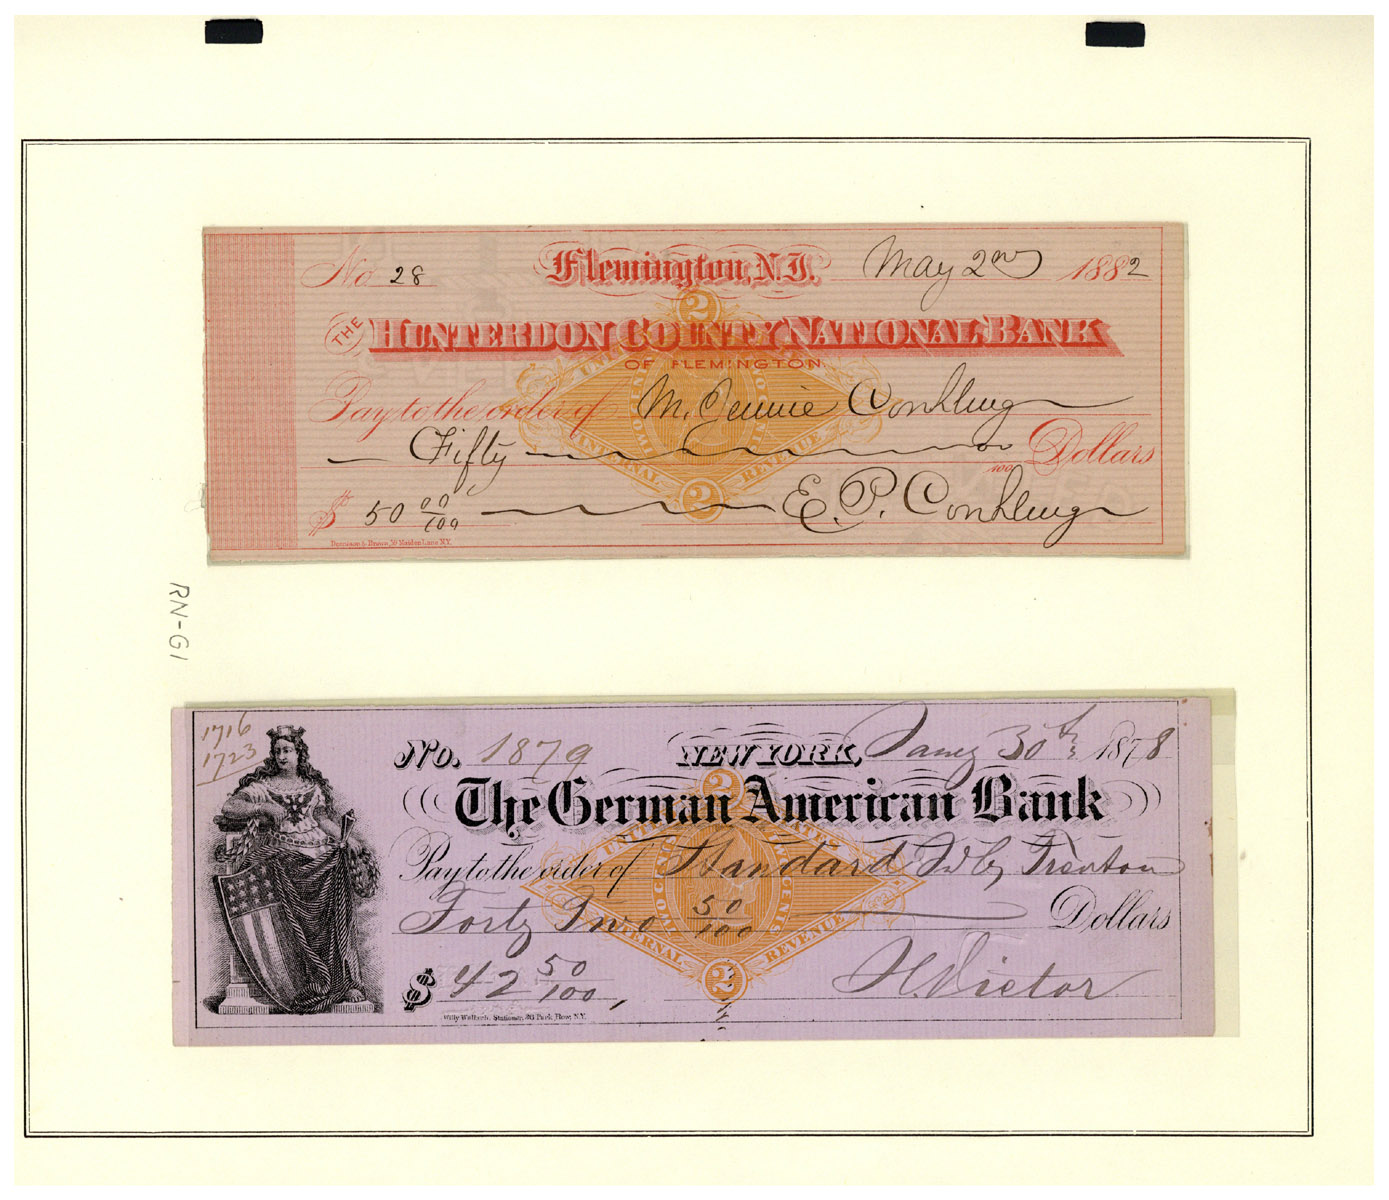 No 28 Flemington, N.J. May 2nd 1882
THE HUNTERDON COUNTY NATIONAL BANK
OF FLEMINGTON
Pay to the order of M. Jennie Conkling
Fifty no/100 Dollars
$ 50 00/100 E. P. Conkling
Dennison & Brown, 59 Maiden Lane N.Y.
2
UNITED STATES
TWO CENTS
INTERNAL REVENUE
2
RN-G1
1716
1723
No. 1879 NEW YORK, Jany 30th 1878
The German American Bank
Pay to the order of Standard
Forty Two 50/100 Dollars
$ 42 50/100, H. Victor
Willy Wallach, Stationer, Park Row, N.Y.
2
UNITED STATES
TWO CENTS
INTERNAL REVENUE
2